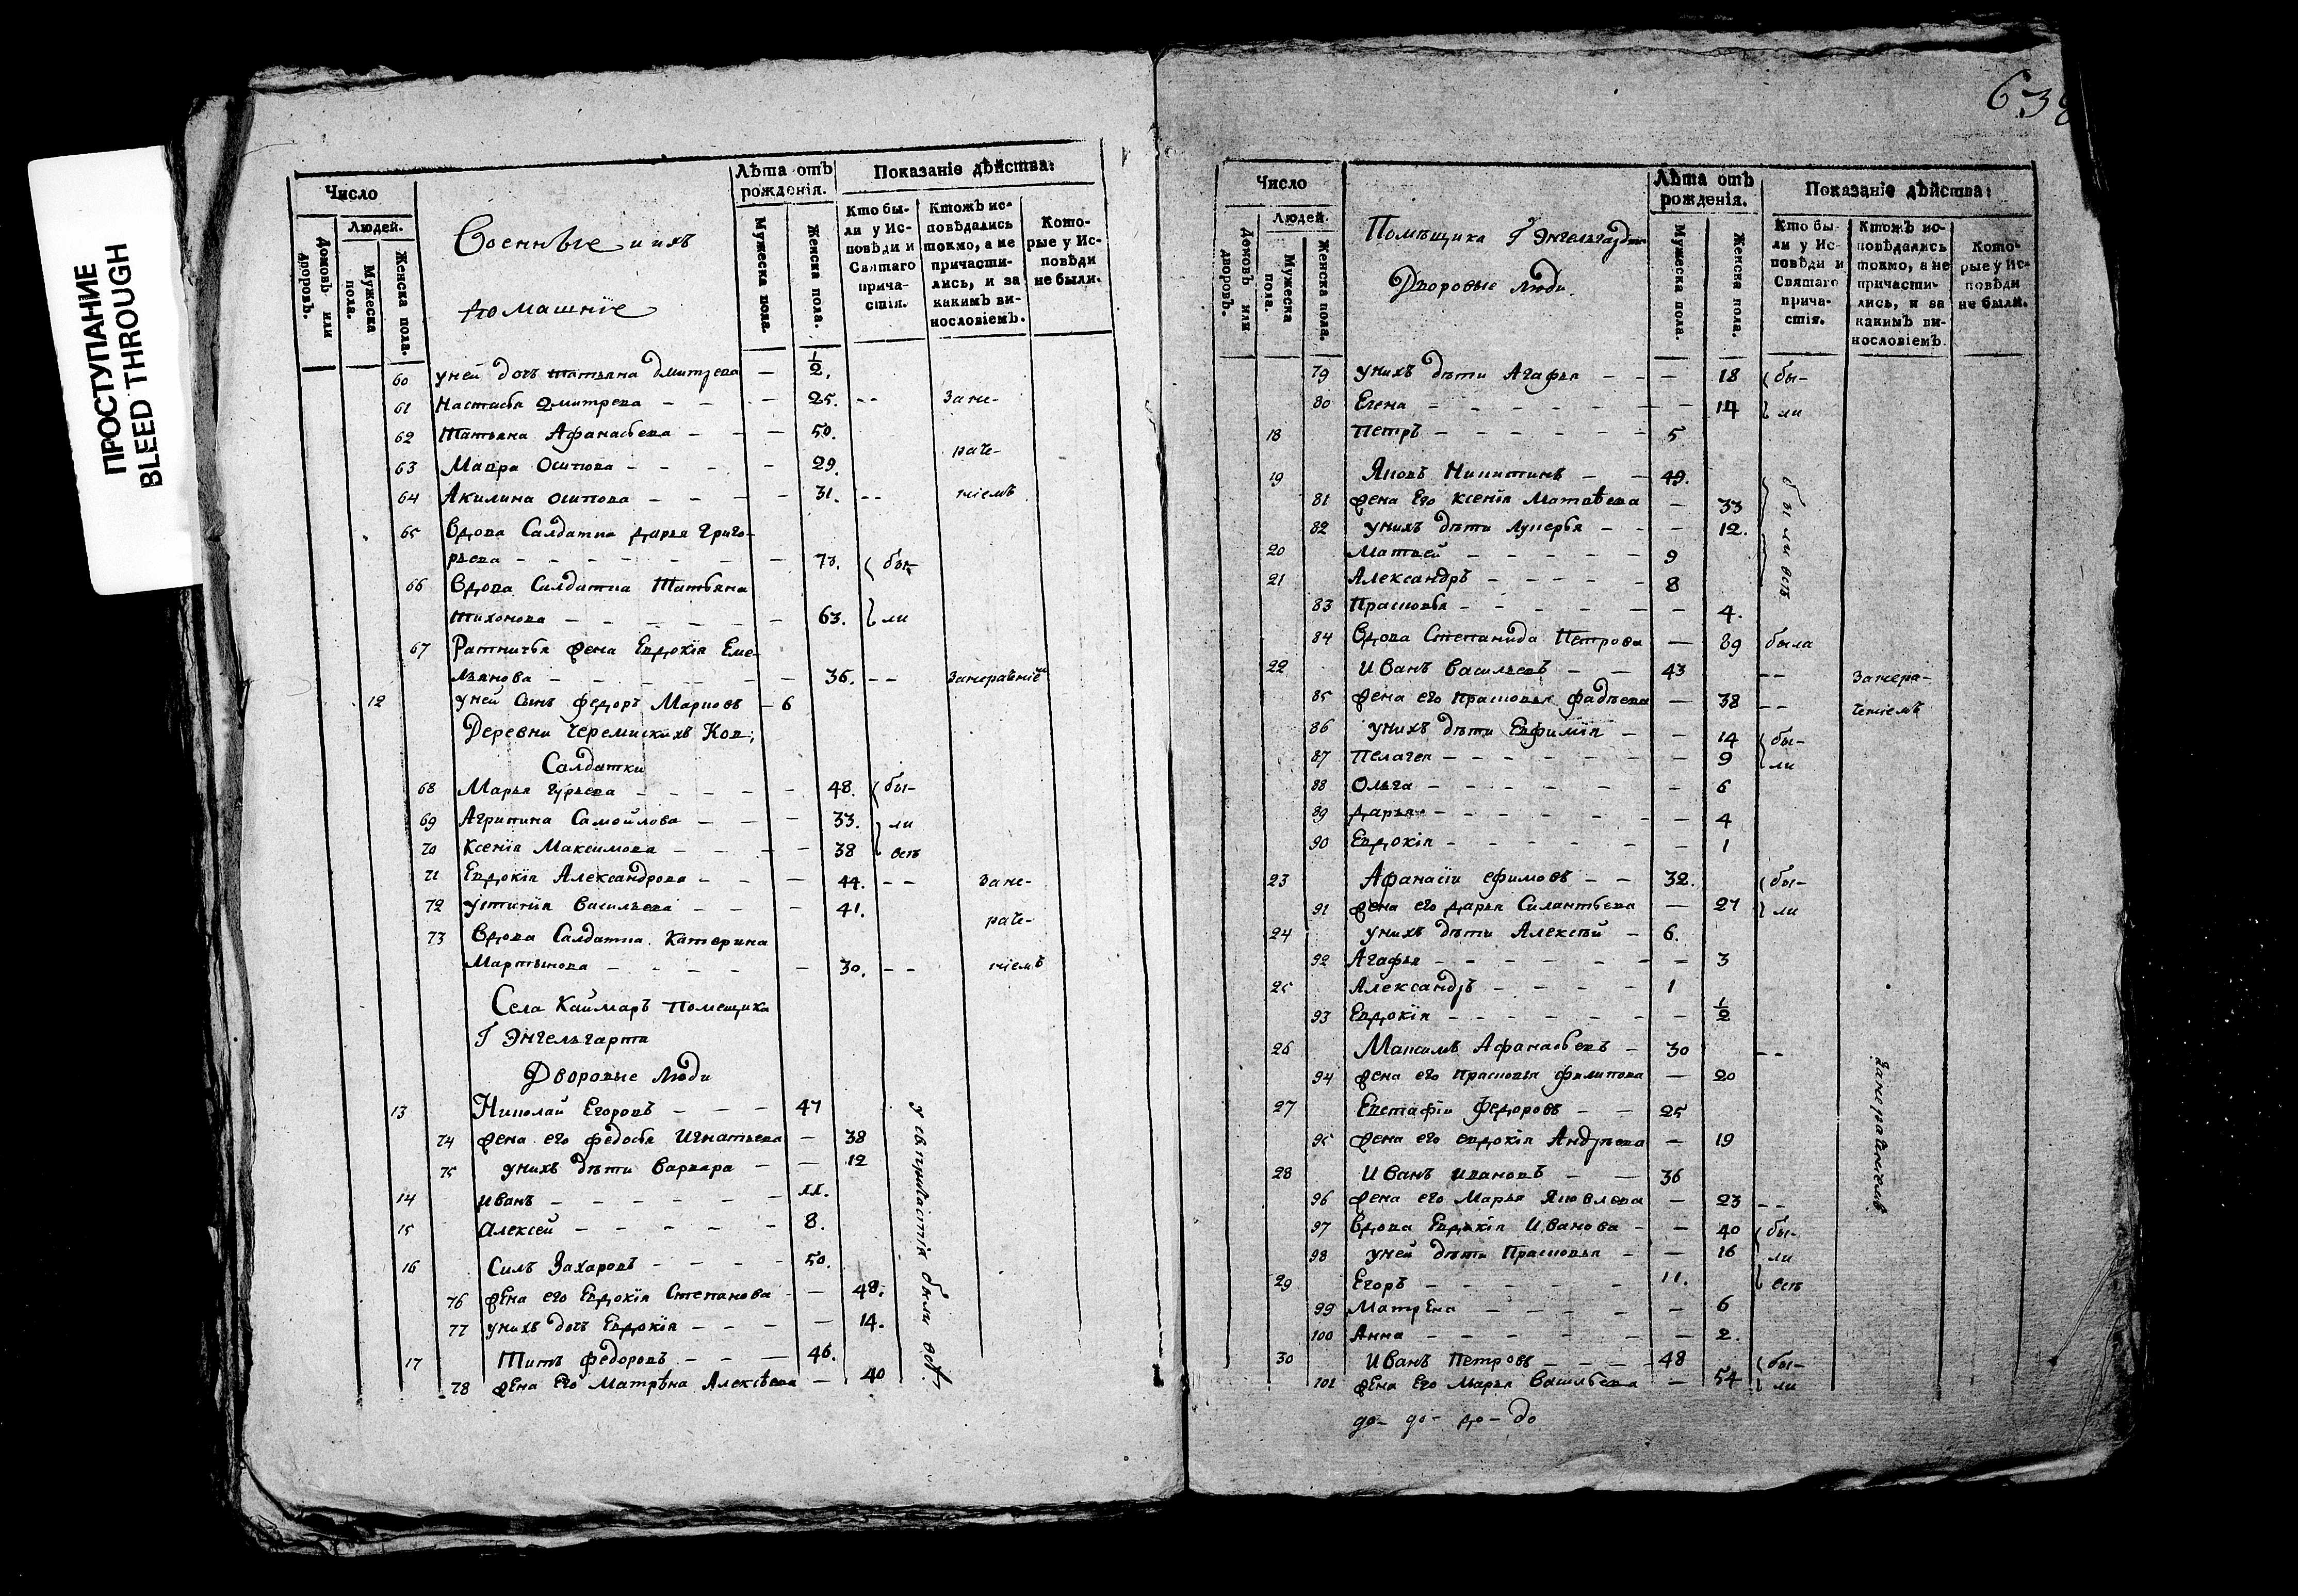 ПРОСТУПАНИЕ
BLEED THROUGH
Число
Людей.
Домовъ или дворовъ.
Мужеска пола.
Женска пола.
Военные и ихъ
домашніе
Лѣта отъ рожденія.
Мужеска пола.
Женска пола.
Показаніе дѣйства:
Кто бы-
ли у Ис-
повѣди и
Святаго
прича-
стія.
Ктожъ ис-
повѣдались
токмо, а не
причасти-
лись, и за
какимъ ви-
нословіемъ.
Кото-
рые у Ис-
повѣди
не были.
60 уней дочь Татьяна Дмитрева — ½.
61 Настасья Дмитрева - - - 25. -- Зане-
62 Татьяна Афанасьева - - - 50.
раче-
63 Мавра Осипова - - - - 29.
64 Акилина Осипова - - - - 31. -- ніемъ
65 Вдова Салдатка Дарья Григо-
рьева - - - - - - 73. бы-
66 Вдова Салдатка Татьяна
Тихонова - - - - - - 63. ли
67 Ратничья жена Евдокія Еме-
льянова - - - - - - 36. --
12 уней сынъ Федоръ Марковъ - 6
Деревни Черемискихъ Ков;
Салдатки
68 Марья Гурьева - - - - - 48. бы-
69 Агрипина Самойлова - - - 33. ли
70 Ксенія Максимова - - - - 38 всѣ
71 Евдокія Александрова - - - 44. -- Зане-
72 Устинія Васильева - - - 41.
раче-
73 Вдова Салдатка Катерина
Мартынова - - - - - - 30. -- ніемъ
Села Каймаръ Помещика
Г Энгельгарта
Дворовые Люди
13 Николай Егоровъ - - - 47
74 жена его Федосья Игнатьева — 38
75 унихъ дѣти Варвара - — 12
14 Иванъ - - - - - - 11.
15 Алексей - - - - - 8.
16 Силъ Захаровъ - - - - 50.
76 жена его Евдокія Степанова - — 48.
77 унихъ дочь Евдокія - - - — 14.
17 Титъ Федоровъ - - — 46.
78 жена Его Матрѣна Алексѣева — 40
у св причастія были всѣ
Число
Людей.
Домовъ или дворовъ.
Мужеска пола.
Женска пола.
Помѣщика Г Энгельгардта
Дворовые Люди.
Лѣта отъ рожденія.
Мужеска пола.
Женска пола.
Показаніе дѣйства:
Кто бы-
ли у Ис-
повѣди и
Святаго
прича-
стія.
Ктожъ ис-
повѣдались
токмо, а не
причасти-
лись, и за
какимъ ви-
нословіемъ.
Кото-
рые у Ис-
повѣди
не были.
79 унихъ дѣти Агафья - - — 18 бы-
80 Елена - - - - - - - 14 ли
18 Петръ - - - - - - 5
19 Яковъ Никитинъ - - 49.
81 жена Его Ксенія Матвѣева — 33
82 унихъ дѣти Лукерья - - - 12.
20 Матвей - - - - - 9
21 Александръ - - - - - 8
83 Прасковья - - - - - - 4.
были всѣ
84 Вдова Степанида Петрова — 89 была
22 Иванъ Васильевъ - — 43 -- Занера-
85 жена его Прасковья Фадѣева — 38 -- ченіемъ
86 унихъ дѣти Евфимія - - 14 бы-
87 Пелагея - - - - - - - 9 ли
88 Ольга - - - - - - - 6
89 Дарья - - - - - - - 4
90 Евдокія - - - - - - - 1
23 Афанасіи Ефимовъ - - 32. бы-
91 жена его Дарья Силантьева — 27 ли
24 унихъ дѣти Алексѣй - 6.
92 Агафья - - - - - - - 3
25 Александръ - - - - 1
93 Евдокія - - - - - - - ½
26 Максимъ Афанасьевъ - 30 --
94 жена его Прасковья Филипова — 20
27 Евстафіи Федоровъ - - 25
95 жена его Евдокія Андрѣева — 19
28 Иванъ Ивановъ - — 36
96 жена его Марья Яковлева — 23 --
Занераченіемъ
97 Вдова Евдокія Иванова - - 40 бы-
98 уней дѣти Прасковья - — 16 ли
29 Егоръ - - - - - - 11. всѣ
99 Матрена - - - - - - 6
100 Анна - - - - - - - 2.
30 Иванъ Петровъ - - - 48 бы-
101 жена Его Марья Васильева — 54 ли
до- до- до- до